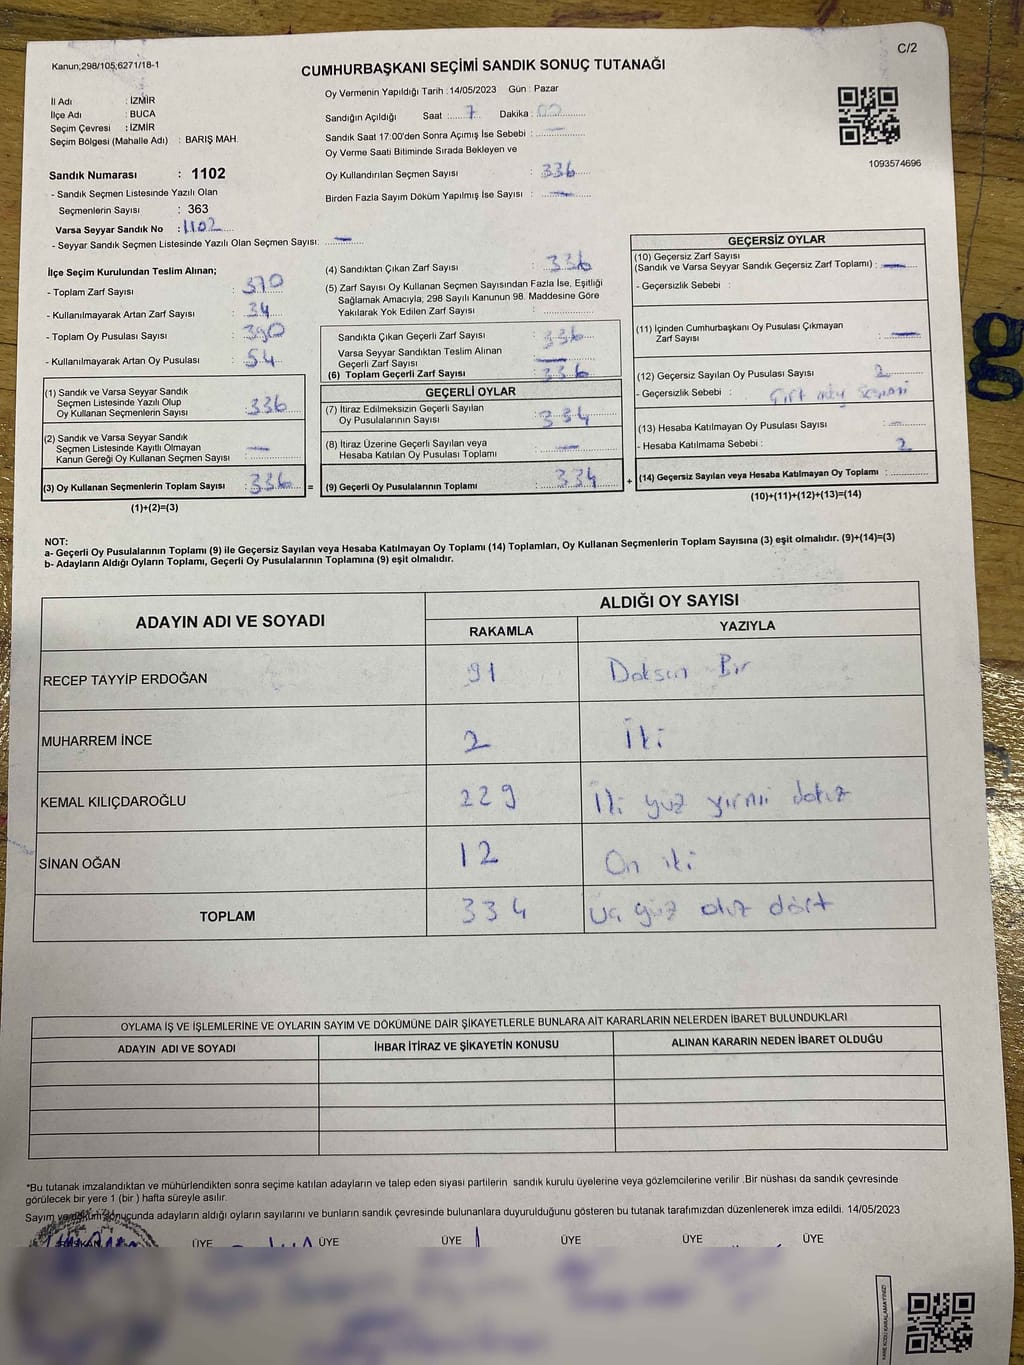 Kanun;298/105,6271/18-1
C/2
CUMHURBAŞKANI SEÇİMİ SANDIK SONUÇ TUTANAĞI
İl Adı : İZMİR
İlçe Adı : BUCA
Seçim Çevresi : İZMİR
Seçim Bölgesi (Mahalle Adı) : BARIŞ MAH.
Sandık Numarası : 1102
- Sandık Seçmen Listesinde Yazılı Olan
Seçmenlerin Sayısı : 363
Varsa Seyyar Sandık No : 1102
- Seyyar Sandık Seçmen Listesinde Yazılı Olan Seçmen Sayısı: —
Oy Vermenin Yapıldığı Tarih : 14/05/2023 Gün : Pazar
Sandığın Açıldığı Saat : 7 Dakika : 00
Sandık Saat 17:00'den Sonra Açımış İse Sebebi : —
Oy Verme Saati Bitiminde Sırada Bekleyen ve
Oy Kullandırılan Seçmen Sayısı : 336
Birden Fazla Sayım Döküm Yapılmış İse Sayısı : —
1093574696
İlçe Seçim Kurulundan Teslim Alınan;
- Toplam Zarf Sayısı : 370
- Kullanılmayarak Artan Zarf Sayısı : 34
- Toplam Oy Pusulası Sayısı : 390
- Kullanılmayarak Artan Oy Pusulası : 54
(1) Sandık ve Varsa Seyyar Sandık
Seçmen Listesinde Yazılı Olup
Oy Kullanan Seçmenlerin Sayısı : 336
(2) Sandık ve Varsa Seyyar Sandık
Seçmen Listesinde Kayıtlı Olmayan
Kanun Gereği Oy Kullanan Seçmen Sayısı : —
(3) Oy Kullanan Seçmenlerin Toplam Sayısı : 336 =
(1)+(2)=(3)
(4) Sandıktan Çıkan Zarf Sayısı : 336
(5) Zarf Sayısı Oy Kullanan Seçmen Sayısından Fazla İse, Eşitliği
Sağlamak Amacıyla, 298 Sayılı Kanunun 98. Maddesine Göre
Yakılarak Yok Edilen Zarf Sayısı :
Sandıkta Çıkan Geçerli Zarf Sayısı : 336
Varsa Seyyar Sandıktan Teslim Alınan
Geçerli Zarf Sayısı : —
(6) Toplam Geçerli Zarf Sayısı : 336
GEÇERLİ OYLAR
(7) İtiraz Edilmeksizin Geçerli Sayılan
Oy Pusulasının Sayısı : 334
(8) İtiraz Üzerine Geçerli Sayılan veya
Hesaba Katılan Oy Pusulası Toplamı : —
(9) Geçerli Oy Pusulalarının Toplamı : 334 +
GEÇERSİZ OYLAR
(10) Geçersiz Zarf Sayısı
(Sandık ve Varsa Seyyar Sandık Geçersiz Zarf Toplamı) : —
- Geçersizlik Sebebi :
(11) İçinden Cumhurbaşkanı Oy Pusulası Çıkmayan
Zarf Sayısı : —
(12) Geçersiz Sayılan Oy Pusulası Sayısı : 2
- Geçersizlik Sebebi :
(13) Hesaba Katılmayan Oy Pusulası Sayısı : —
- Hesaba Katılmama Sebebi : 2
(14) Geçersiz Sayılan veya Hesaba Katılmayan Oy Toplamı :
(10)+(11)+(12)+(13)=(14)
NOT:
a- Geçerli Oy Pusulalarının Toplamı (9) ile Geçersiz Sayılan veya Hesaba Katılmayan Oy Toplamı (14) Toplamları, Oy Kullanan Seçmenlerin Toplam Sayısına (3) eşit olmalıdır. (9)+(14)=(3)
b- Adayların Aldığı Oyların Toplamı, Geçerli Oy Pusulalarının Toplamına (9) eşit olmalıdır.
ADAYIN ADI VE SOYADI ALDIĞI OY SAYISI
RAKAMLA YAZIYLA
RECEP TAYYİP ERDOĞAN 91 Doksan Bir
MUHARREM İNCE 2 İki
KEMAL KILIÇDAROĞLU 229 İki yüz yirmi dokuz
SİNAN OĞAN 12 On iki
TOPLAM 334 Üç yüz otuz dört
OYLAMA İŞ VE İŞLEMLERİNE VE OYLARIN SAYIM VE DÖKÜMÜNE DAİR ŞİKAYETLERLE BUNLARA AİT KARARLARIN NELERDEN İBARET BULUNDUKLARI
ADAYIN ADI VE SOYADI İHBAR İTİRAZ VE ŞİKAYETİN KONUSU ALINAN KARARIN NEDEN İBARET OLDUĞU
*Bu tutanak imzalandıktan ve mühürlendikten sonra seçime katılan adayların ve talep eden siyasi partilerin sandık kurulu üyelerine veya gözlemcilerine verilir .Bir nüshası da sandık çevresinde
görülecek bir yere 1 (bir ) hafta süreyle asılır.
Sayım ve döküm sonucunda adayların aldığı oyların sayılarını ve bunların sandık çevresinde bulunanlara duyurulduğunu gösteren bu tutanak tarafımızdan düzenlenerek imza edildi. 14/05/2023
BAŞKAN ÜYE ÜYE ÜYE ÜYE ÜYE ÜYE